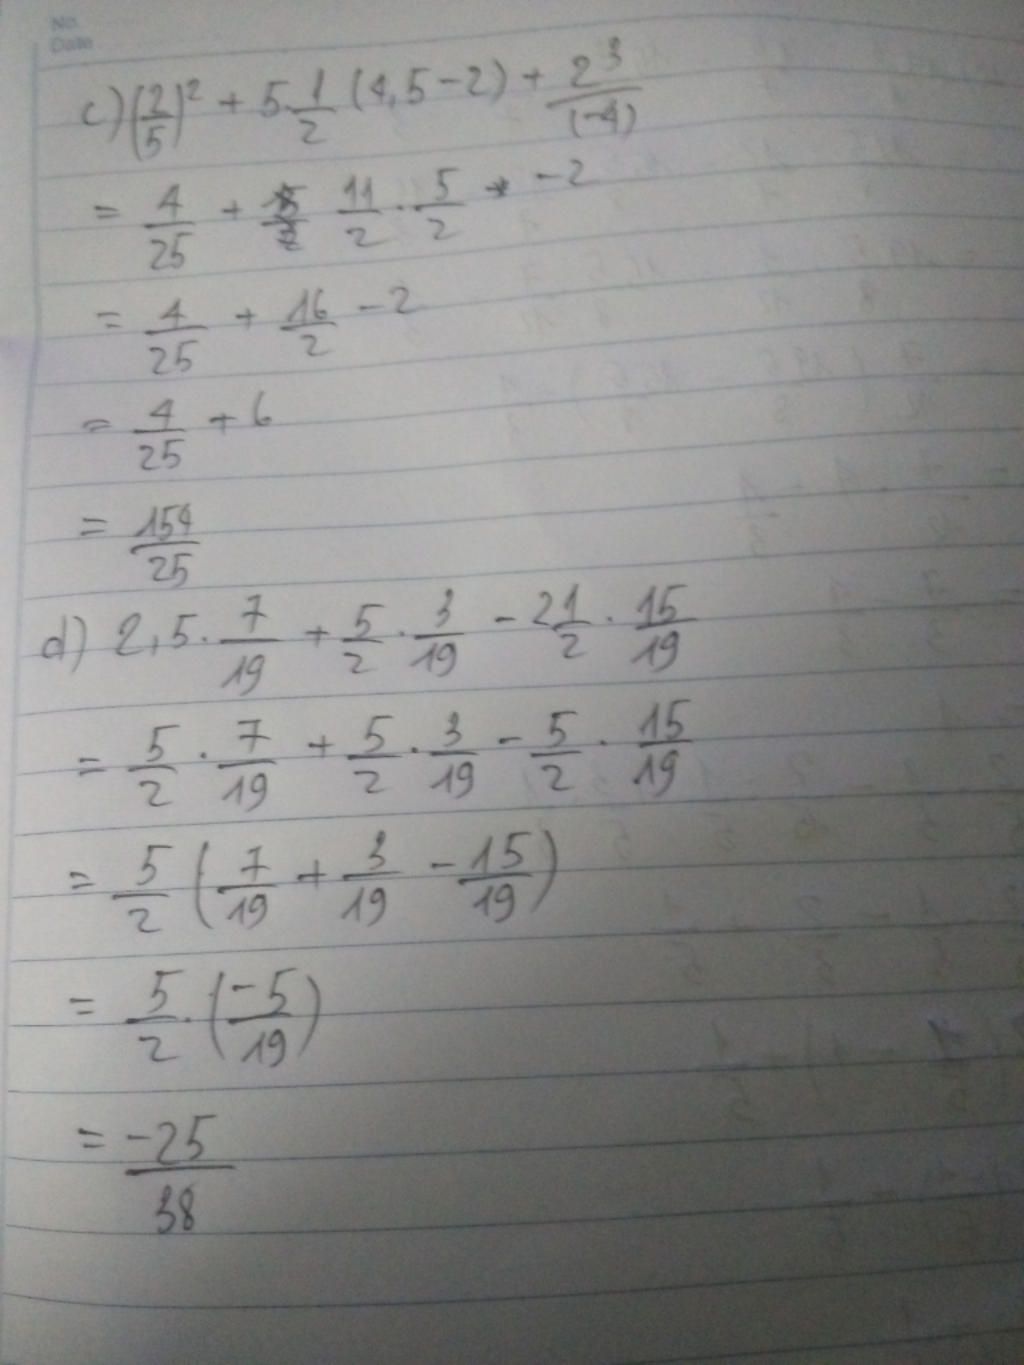 No.
Date
c) (2/5)² + 5 1/2 (4,5 - 2) + 2³/(-4)
= 4/25 + 11/2 . 5/2 + -2
= 4/25 + 16/2 - 2
= 4/25 + 6
= 154/25
d) 2,5 . 7/19 + 5/2 . 3/19 - 2 1/2 . 15/19
= 5/2 . 7/19 + 5/2 . 3/19 - 5/2 . 15/19
= 5/2 (7/19 + 3/19 - 15/19)
= 5/2 . (-5/19)
= -25/38